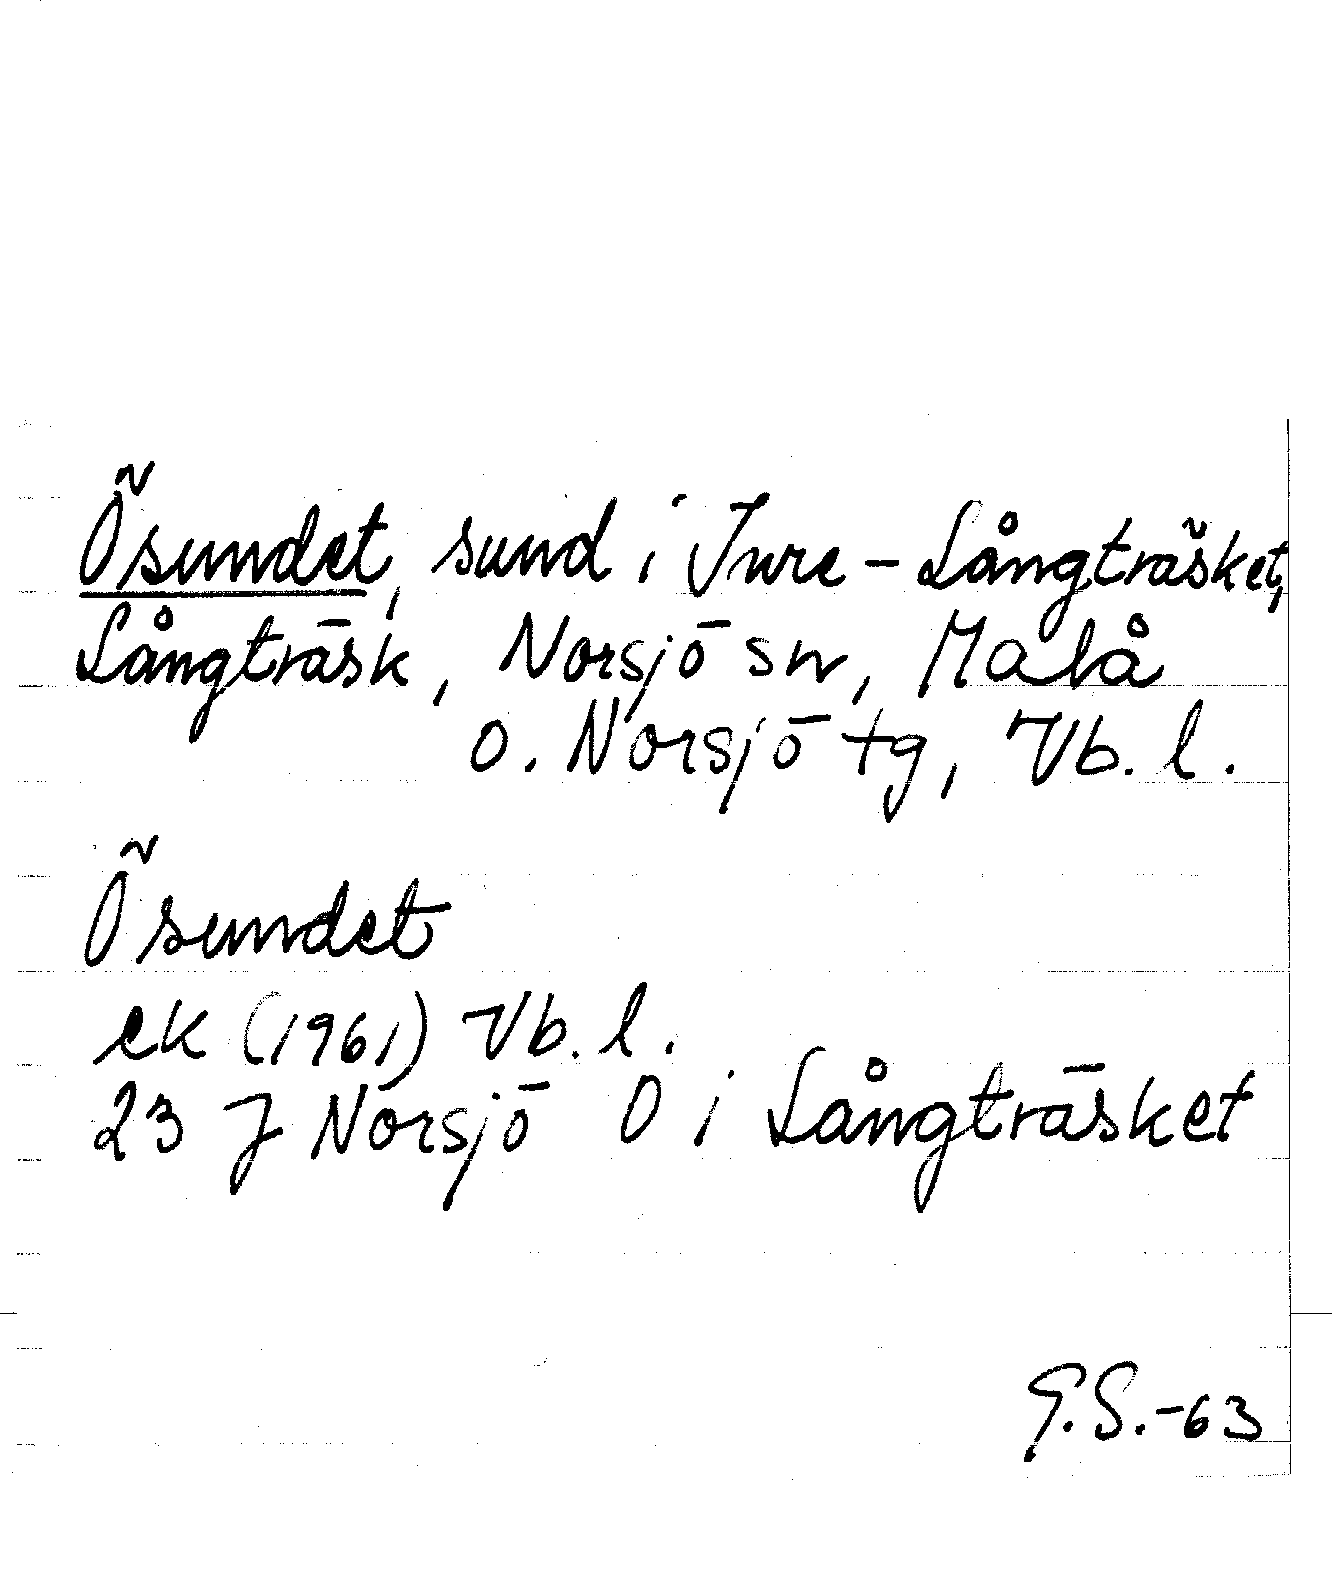 Ösundet, sund i Inre-Långträsket,
Långträsk, Norsjö sn, Malå
o. Norsjö tg, Vb. l.
Ösundet
ek (1961) Vb. l.
23 J Norsjö O i Långträsket
G.S.-63